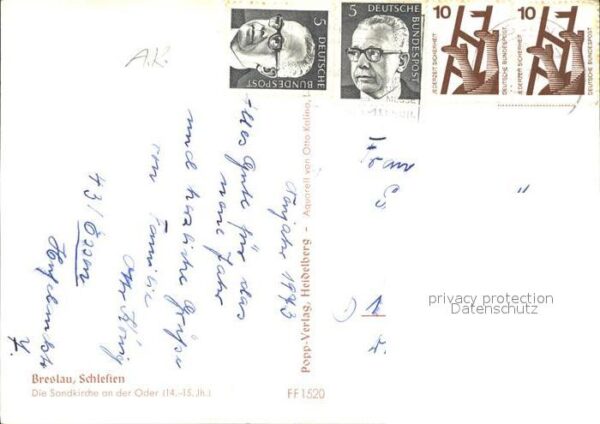 A.K.
5
DEUTSCHE
BUNDESPOST
5 DEUTSCHE
BUNDESPOST
10
JEDERZEIT SICHERHEIT
DEUTSCHE BUNDESPOST
10
JEDERZEIT SICHERHEIT
DEUTSCHE BUNDESPOST
Neujahr 1973
Alles Gute für das
neue Jahr
und herzliche Grüße
von Familie
Otto König
43 / Essen
Popp-Verlag, Heidelberg - Aquarell von Otto Kalina,
Frau
privacy protection
Datenschutz
Breslau, Schlesien
Die Sandkirche an der Oder (14.-15. Jh.)
FF 1520